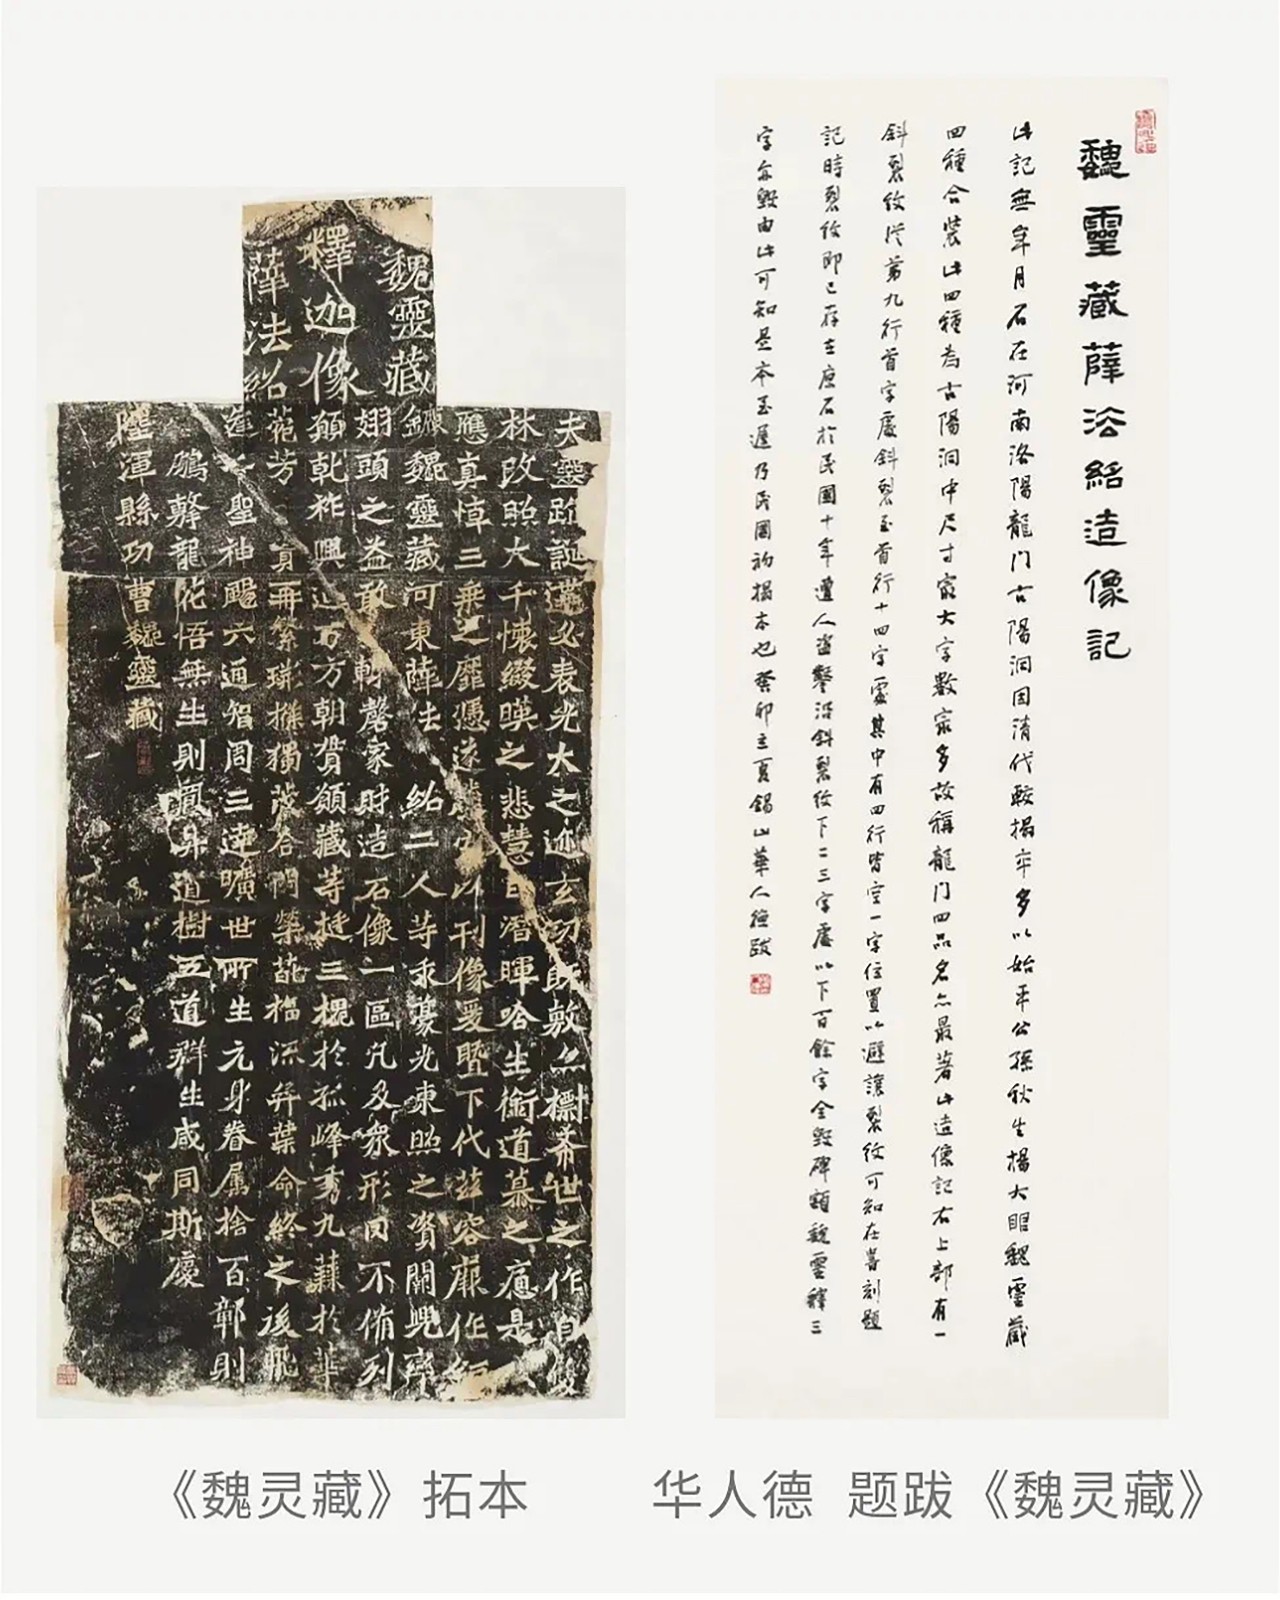 魏靈藏
釋迦像
薛法紹
夫靈跡誕遘必表光大之迹玄功既敷亦標希世之作自雙
林改照大千懷綴暎之悲慧日潛暉哈生銜道慕之痛是
應真悼三乘之靡憑遂騰空以刊像爰暨下代茲容厥作
鑣魏靈藏河東薛法紹二人等求豪光東照之資闕兜率
翅頭之益敢輒磬家財造石像一區凡及衆形罔不備列
願乾祚興延万方朝貫願藏等挺三槐於孤峰秀九蕀於華
菀芳實再繁荊條獨茂合門榮葩福流弈葉命終之後飛
逢千聖神颺六通智周三達曠世所生元身眷属捨百鄣則
鵬擊龍花悟無生則昇道樹五道群生咸同斯慶
陸渾縣功曹魏靈藏
魏靈藏薛法紹造像記
此記無年月石在河南洛陽龍门古陽洞因清代較搨本多以始平公孫秋生楊大眼魏靈藏
四種合裝此四種為古陽洞中尺寸最大字數最多故稱龍门四品名亦最著此造像記右上部有一
斜裂紋從第九行首字處斜裂至首行十四字處其中有四行皆空一字位置以避讓裂紋可知在書刻題
記時裂紋即已存在原石於民國十年遭人盜鑿沿斜裂紋下二三字處以下百餘字全毀碑額魏靈釋三
字亦毀由此可知是本至遲乃民國初搨本也癸卯立夏錫山華人德跋
《魏灵藏》拓本
华人德 题跋《魏灵藏》